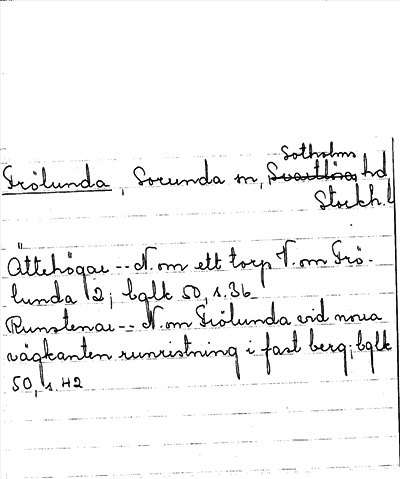 Sotholms
Frölunda, Sorunda sn, Svartlösa hd
Stockh. l
Ättehögar -- N. om ett torp V. om Frö-
lunda 2; bglk 50, s. 36
Runstenar -- N. om Frölunda vid norra
vägkanten runristning i fast berg; bglk
50, s. 42